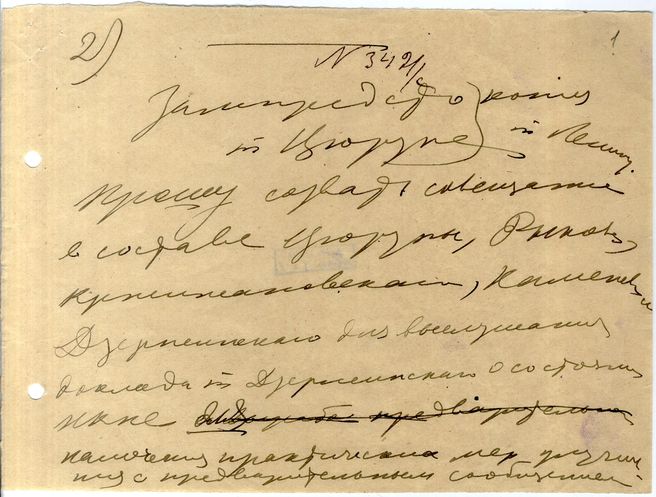 2)
1
N 342/с
Зампредсто копия
т Цюрупе т Ленину.
Прошу созвать совещание
в составе Цюрупы, Рыкова,
Кржижановского, Каменева и
Дзержинского для выслушания
доклада т Дзержинского о состоянии
НКПС предварительно
намечения практических мер
с предварительным сообщением